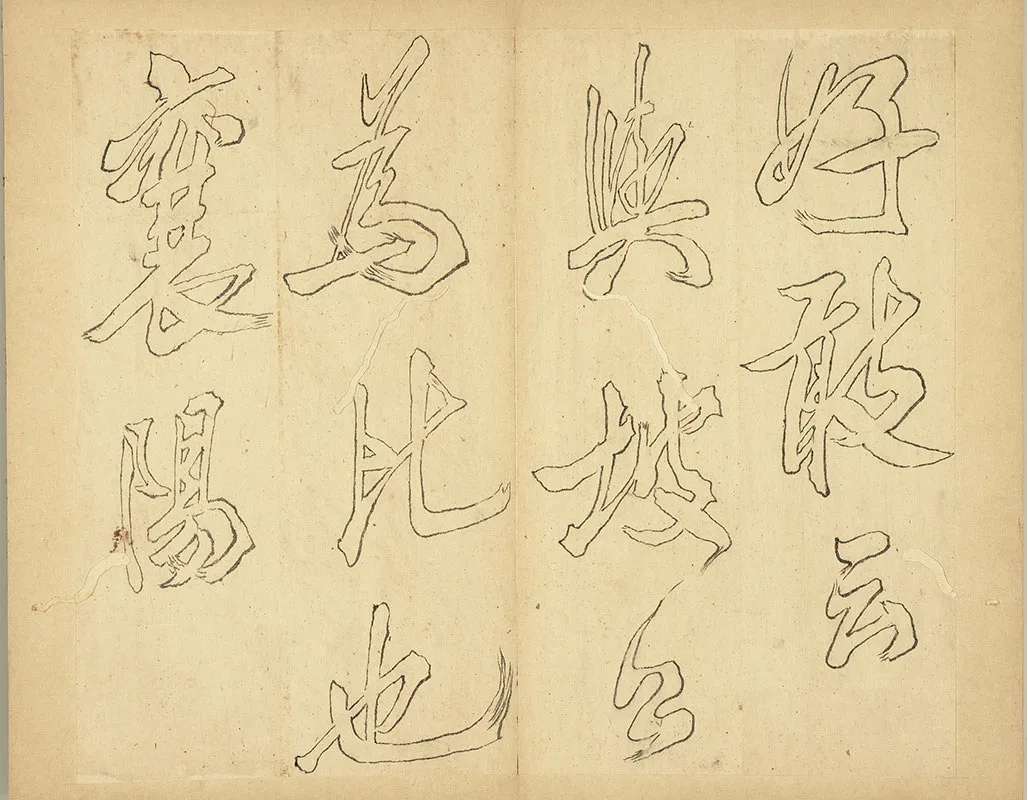 好敢云
與坡公
為比也
襄陽